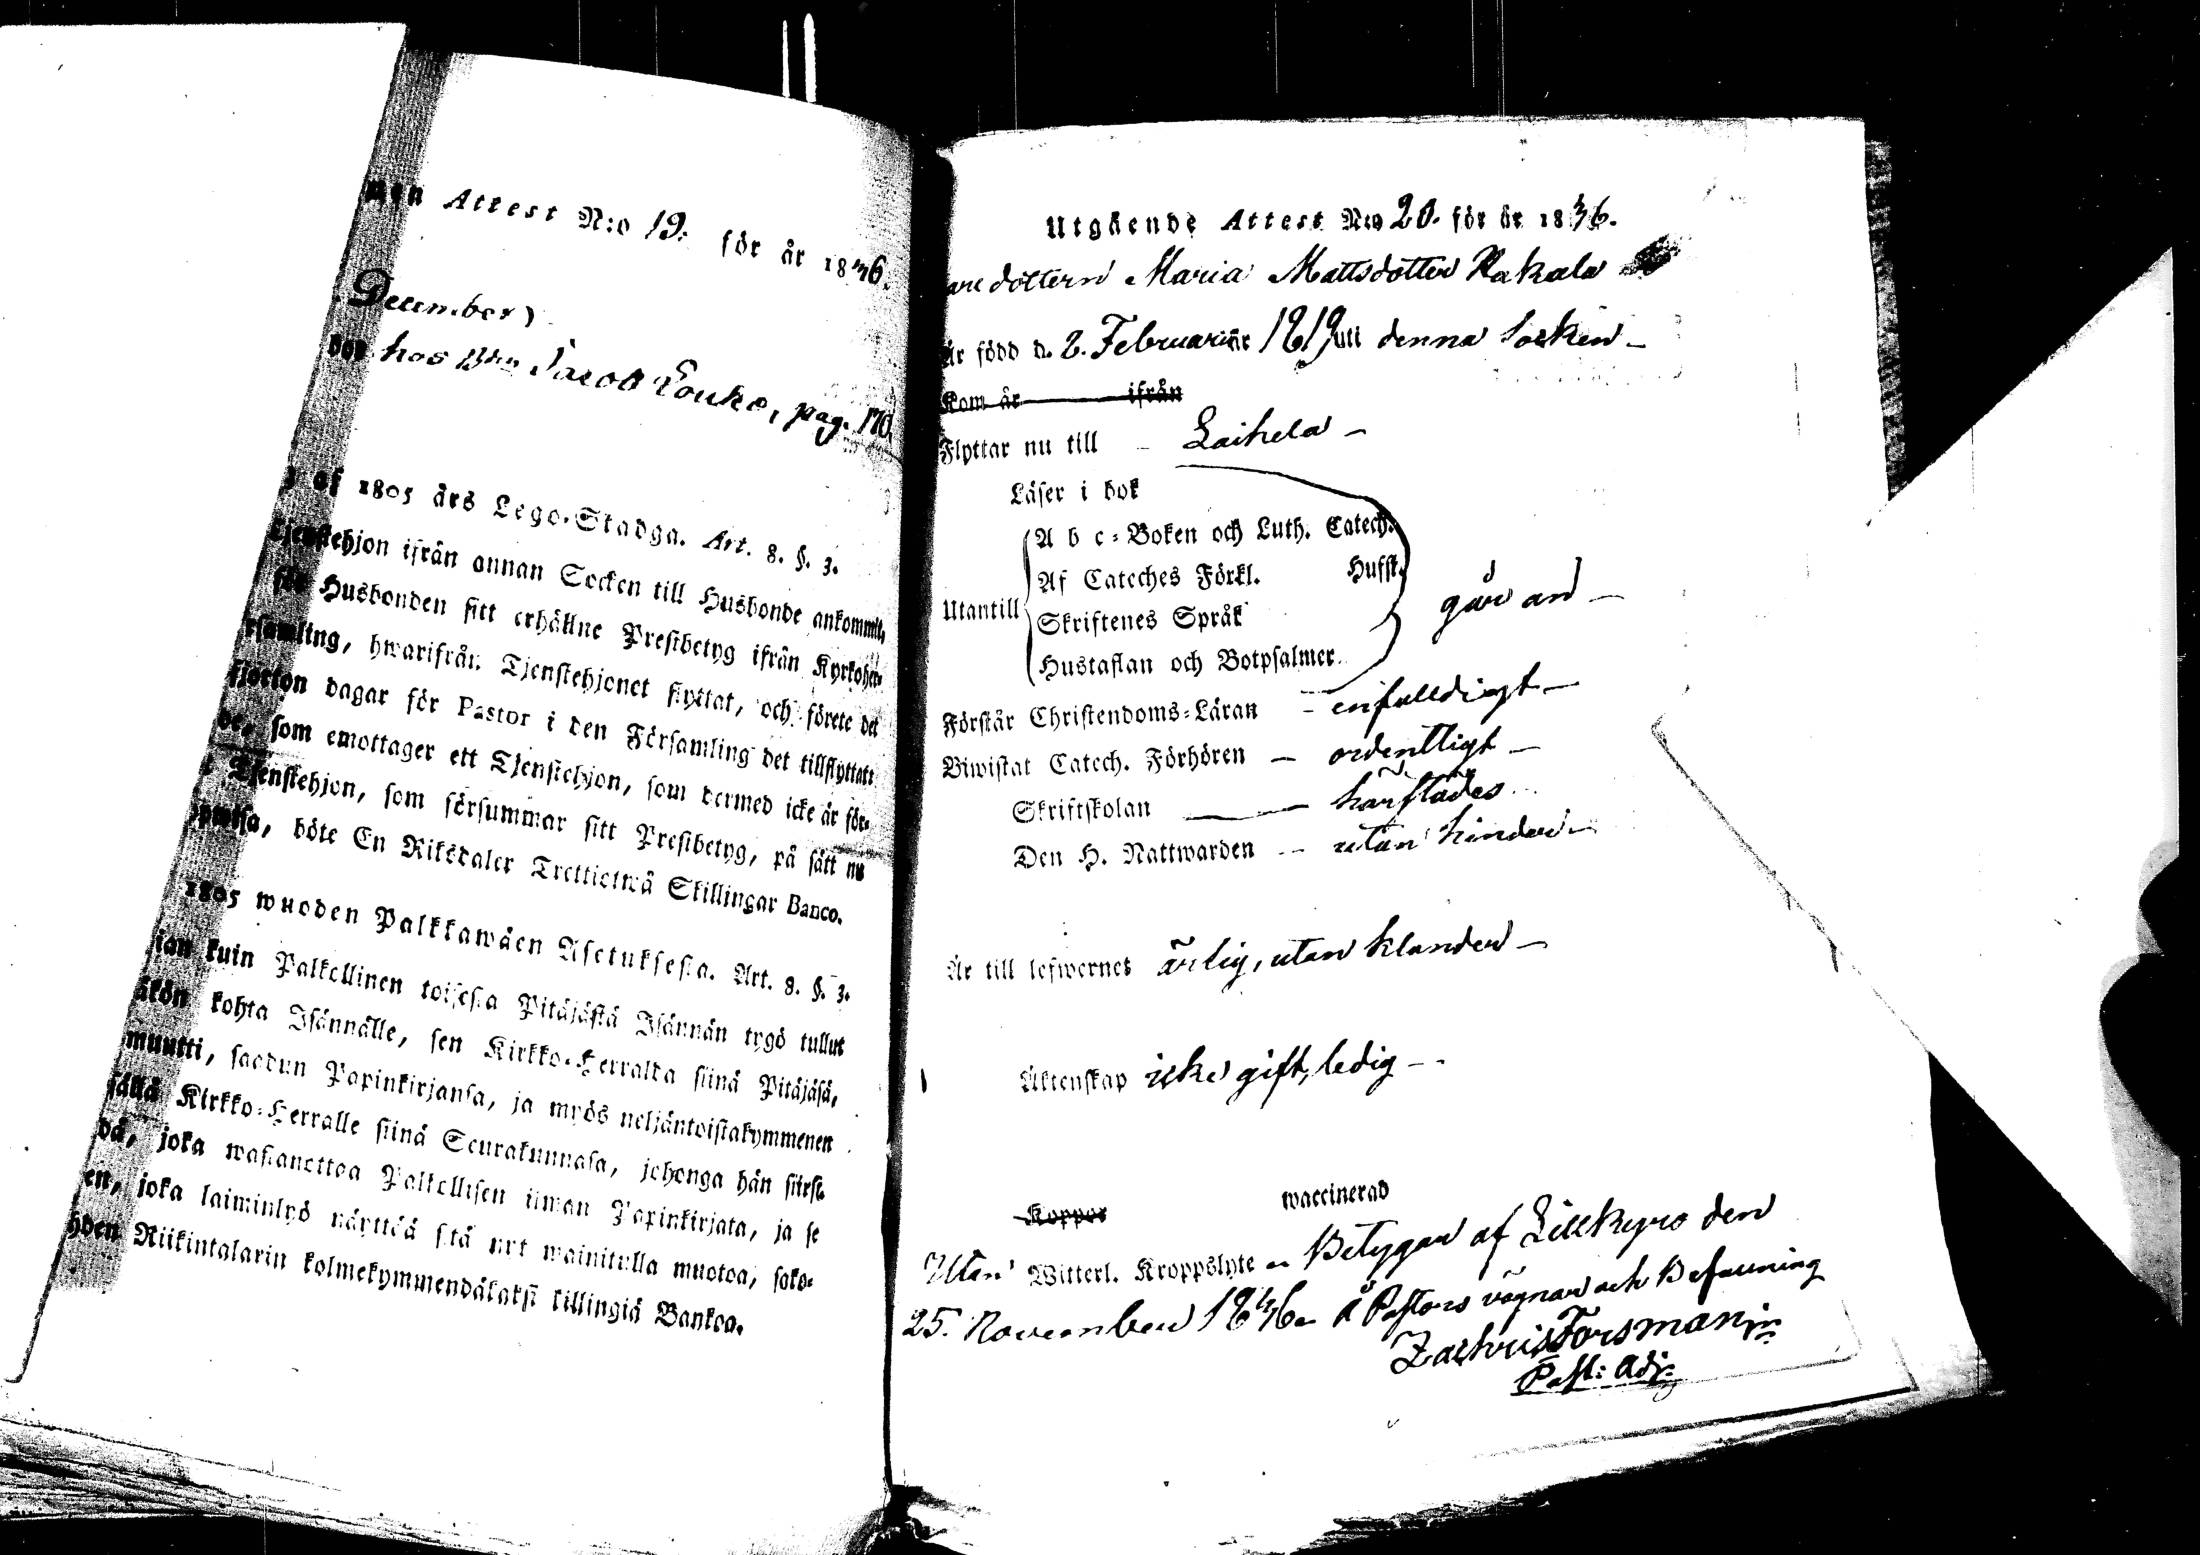 men Attest N:o 19. för år 1846.
December)
hos Bdn Jacob Louko, pag. 170.
af 1805 års Lego-Stadga. Art. 8. §. 3.
tjenstehjon ifrån annan Socken till Husbonde ankommit,
för Husbonden sitt erhållne Prestbetyg ifrån Kyrkoher-
rsamling, hwarifrån Tjenstehjonet flyttat, och förete det
fjorton dagar för Pastor i den Församling det tillflyttat:
de, som emottager ett Tjenstehjon, som dermed icke är för-
Tjenstehjon, som försummar sitt Prestbetyg, på sätt nu
uppwisa, böte En Riksdaler Trettiotwå Skillingar Banco.
1805 wuoden Palkkawäen Asetuksesta. Art. 8. §. 3.
ian kuin Palkollinen toisesta Pitäjästä Isännän tygö tullut
äkön kohta Isännälle, sen Kirkko-Herralta siinä Pitäjäsä,
muutti, saadun Papinkirjansa, ja myös neljäntoistakymmenen
sällä Kirkko-Herralle siinä Seurakunnasa, johonga hän siirst
dä, joka wastanottaa Palkollisen ilman Papinkirjata, ja se
en, joka laiminlyö näyttää sitä nyt mainitulla muotoa, sako-
hden Riikintalarin kolmekymmendäkaksi killingiä Bankoa.
Utgående Attest N:o 20. för år 1846.
dottern Maria Mattsdotter Kakala
Är född d. 2. Februari år 1819 uti denna Socken –
Kom år ifrån
Flyttar nu till – Laihela –
Läser i bok
Utantill
A b c-Boken och Luth. Catech.
Af Cateches Förkl. Hufst.
Skriftenes Språk
Hustaflan och Botpsalmer.
går an –
Förstår Christendoms-Läran – enfalldigt –
Biwistat Catech. Förhören – ordentligt –
Skriftskolan – härstädes
Den H. Nattwarden – utan hinder –
Är till lefwernet ärlig, utan klander –
Äktenskap icke gift, ledig –
Koppor waccinerad
Utan Witterl. Kroppslyte – Betygar af Lillkyro den
25. November 1846 – å Pastors vägnar och Befauning
Zachris Forsman
Past: Adj: